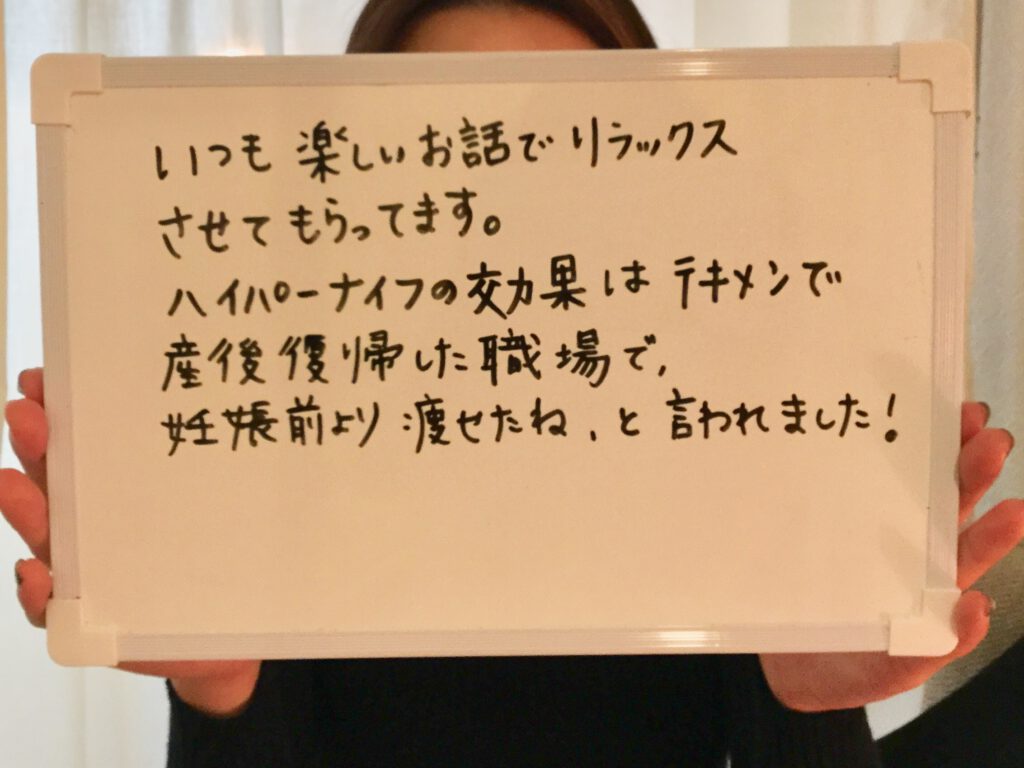 いつも 楽しいお話でリラックス
させてもらってます。
ハイパーナイフの効果はテキメンで
産後復帰した職場で、
妊娠前より 痩せたね、と言われました！